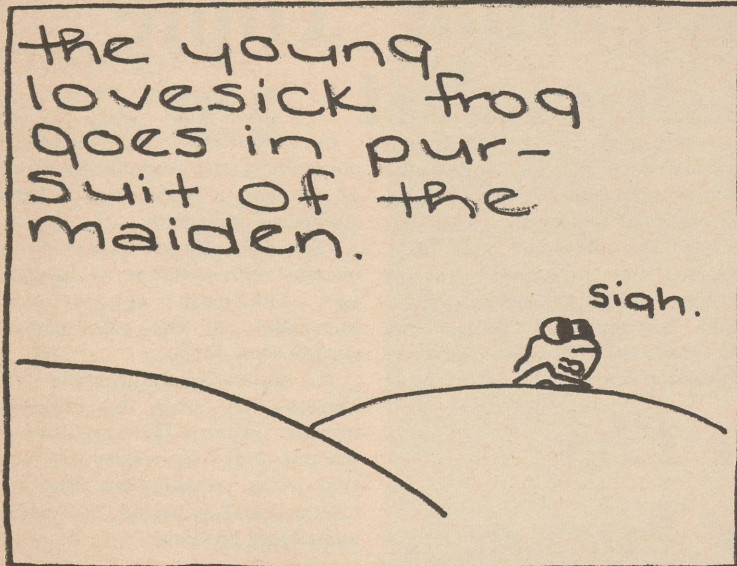 the young
lovesick frog
goes in pur-
suit of the
maiden.
sigh.